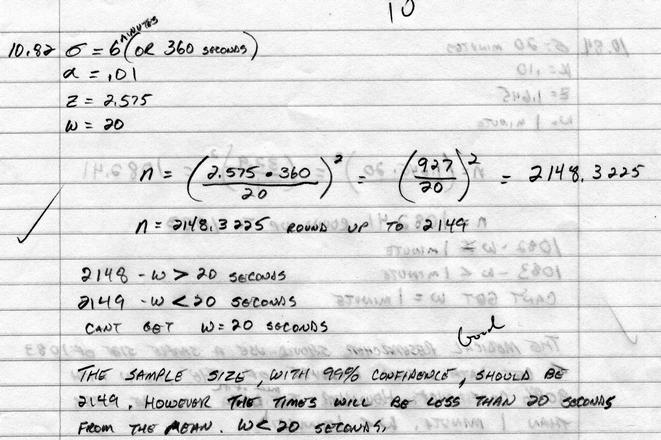 10
10.82 σ = 6 minutes (OR 360 SECONDS)
α = .01
Z = 2.575
W = 20
n = (2.575 • 360 / 20)² = (927 / 20)² = 2148.3225
n = 2148.3225 ROUND UP TO 2149
2148 - W > 20 SECONDS
2149 - W < 20 SECONDS
CANT GET W = 20 SECONDS
Good
THE SAMPLE SIZE, WITH 99% CONFIDENCE, SHOULD BE
2149. HOWEVER THE TIMES WILL BE LESS THAN 20 SECONDS
FROM THE MEAN. W < 20 SECONDS.